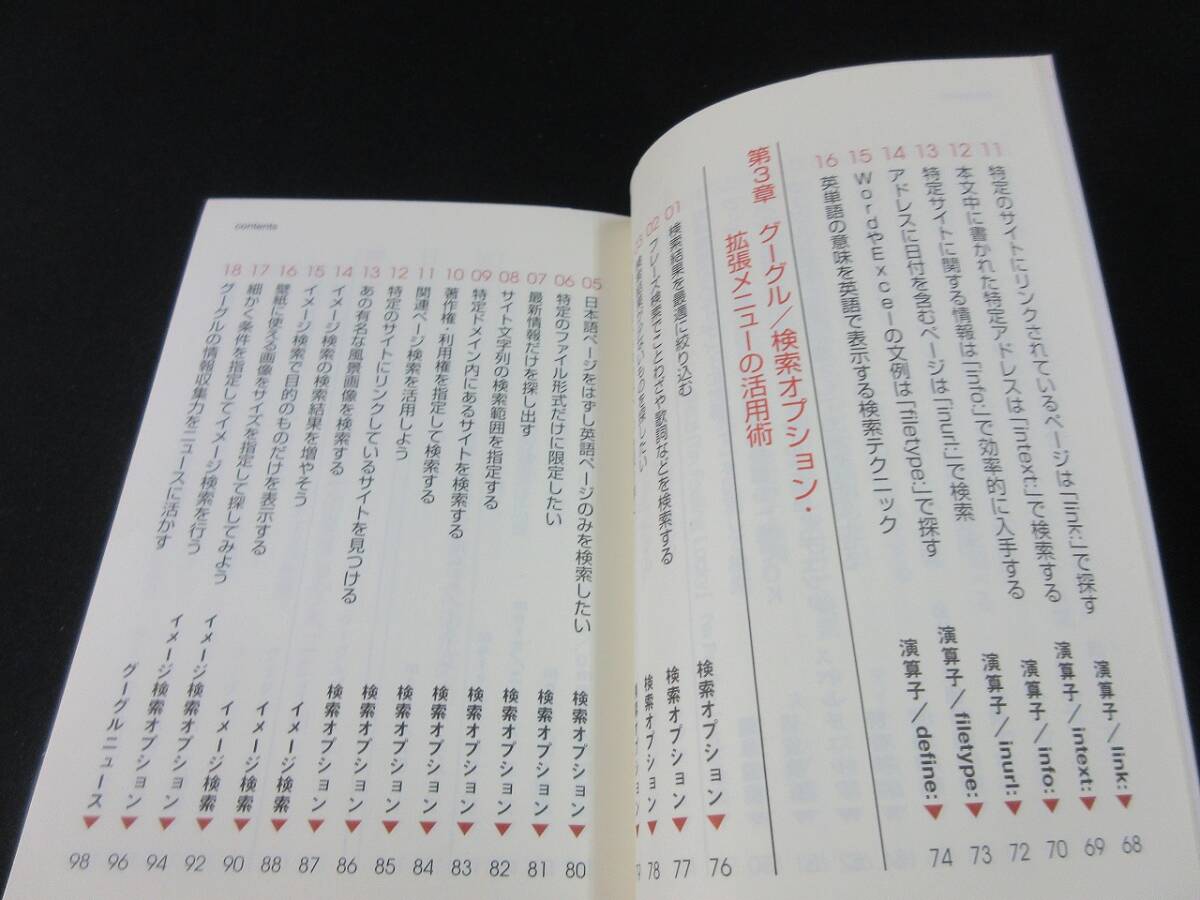 11 特定のサイトにリンクされているページは「link:」で探す 演算子/link:▼ 68
12 本文中に書かれた特定アドレスは「intext:」で検索する 演算子/intext:▼ 69
13 特定サイトに関する情報は「info:」で効率的に入手する 演算子/info:▼ 70
14 アドレスに日付を含むページは「inurl:」で検索 演算子/inurl:▼ 72
15 WordやExcelの文例は「filetype:」で探す 演算子/filetype:▼ 73
16 英単語の意味を英語で表示する検索テクニック 演算子/define:▼ 74
第3章 グーグル/検索オプション・
拡張メニューの活用術
01 検索結果を最適に絞り込む 検索オプション▼ 76
02 フレーズ検索でことわざや歌詞などを検索する 検索オプション▼ 77
検索オプション▼ 78
contents
05 日本語ページをはずし英語ページのみを検索したい 検索オプション▼ 80
06 特定のファイル形式だけに限定したい 検索オプション▼ 81
07 最新情報だけを探し出す 検索オプション▼ 82
08 サイト文字列の検索範囲を指定する 検索オプション▼ 83
09 特定ドメイン内にあるサイトを検索する 検索オプション▼ 84
10 著作権・利用権を指定して検索する 検索オプション▼ 85
11 関連ページ検索を活用しよう 検索オプション▼ 86
12 特定のサイトにリンクしているサイトを見つける 検索オプション▼ 87
13 あの有名な風景画像を検索する イメージ検索▼ 88
14 イメージ検索の検索結果を増やそう イメージ検索▼ 90
15 イメージ検索で目的のものだけを表示する イメージ検索▼ 92
16 壁紙に使える画像をサイズを指定して探してみよう イメージ検索オプション▼ 94
17 細かく条件を指定してイメージ検索を行う イメージ検索オプション▼ 96
18 グーグルの情報収集力をニュースに活かす グーグルニュース▼ 98